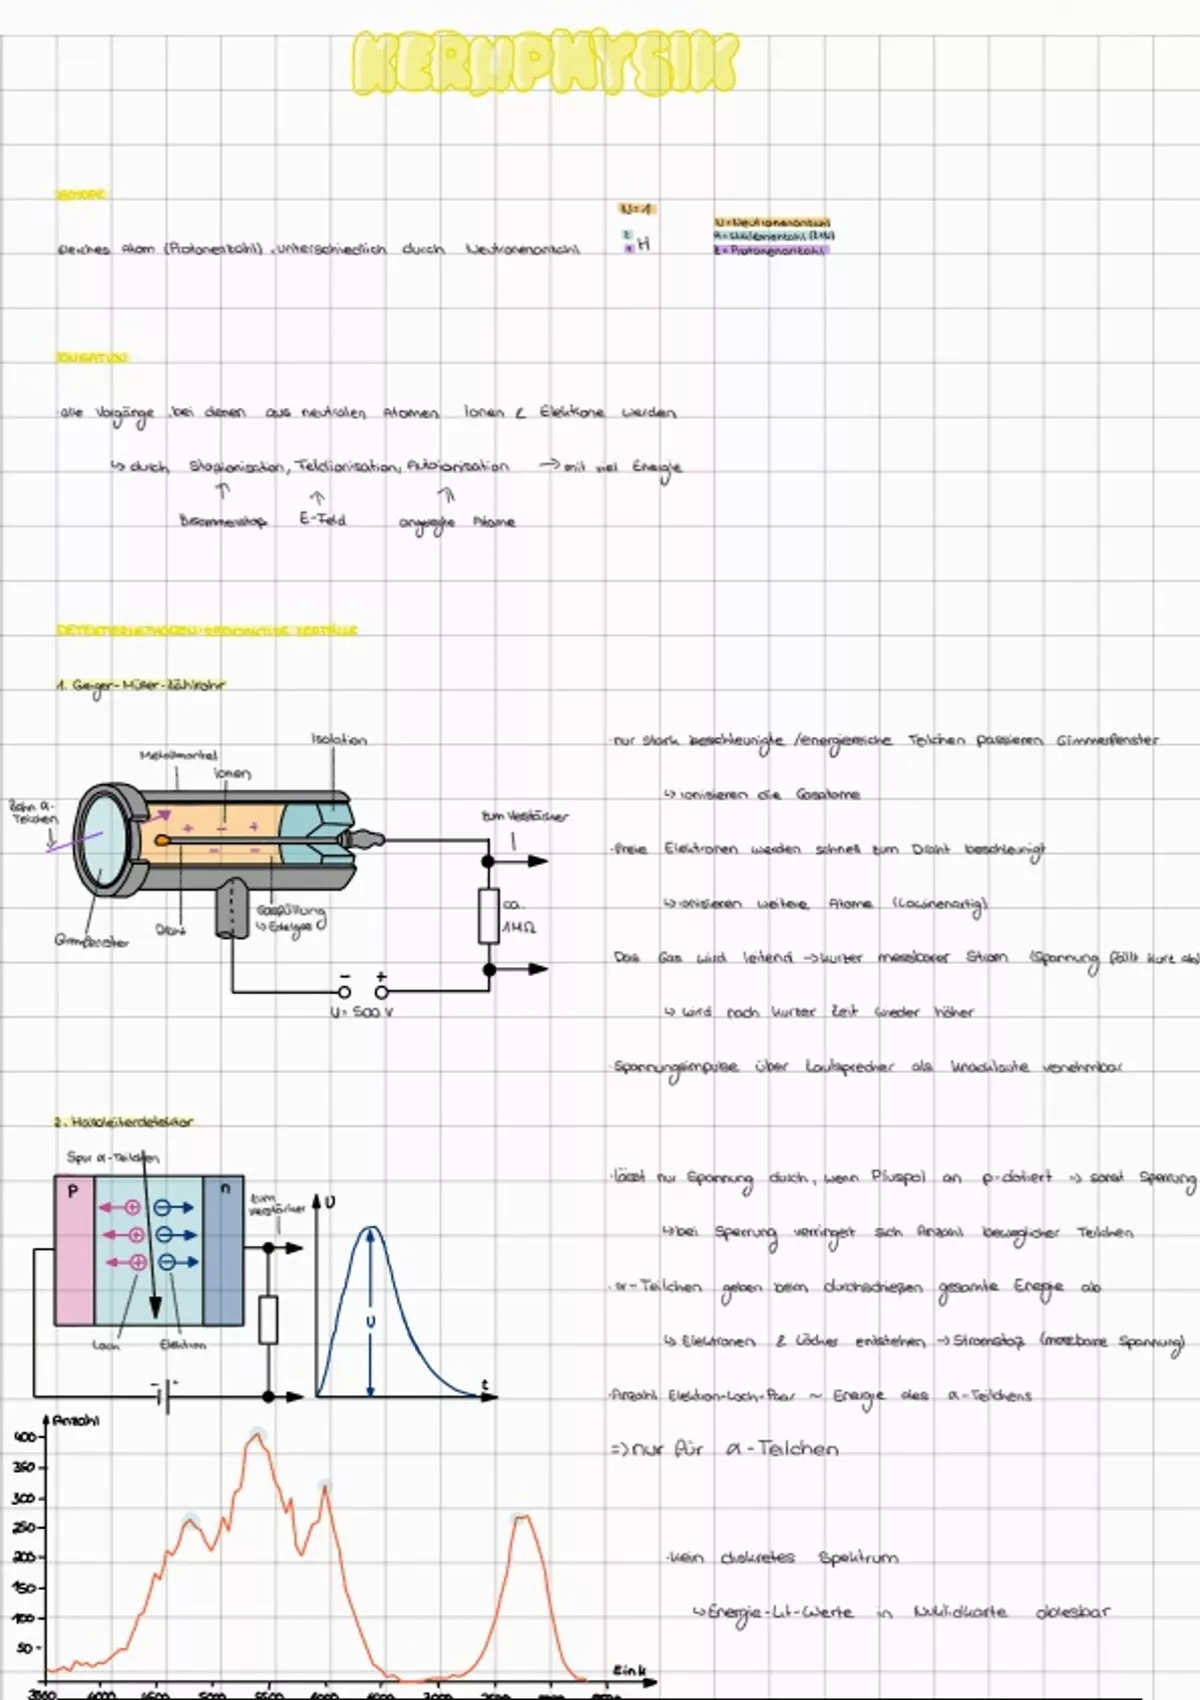 KERNPHYSIK
ISOTOPE
N=1
N=Neutronenanzahl
gleiches Atom (Protonenzahl), unterschiedlich durch Neutronenanzahl
H
Z=Protonenanzahl
IONISATION
alle Vorgänge, bei denen aus neutralen Atomen Ionen & Elektrone werden
↳ durch Stoßionisation, Feldionisation, Autoionisation → mit viel Energie
E-Feld
angeregte Atome
DETEKTIERMETHODEN RADIOAKTIVE ZERFÄLLE
1. Geiger-Müller-Zählrohr
Isolation
Metallmantel
Ionen
α-Teilchen
zum Verstärker
ca. 1MΩ
Gasfüllung
↳ Edelgas
Draht
Glimmfenster
- +
U= 500 V
·nur stark beschleunigte /energiereiche Teilchen passieren Glimmerfenster
↳ ionisieren die Gasatome
·freie Elektronen werden schnell zum Draht beschleunigt
↳ ionisieren weitere Atome (Lawinenartig)
Das Gas wird leitend → kurzer messbarer Strom (Spannung fällt kurz ab)
↳ wird nach kurzer Zeit wieder höher
Spannungsimpulse über Lautsprecher als Knacklaute vernehmbar
2. Halbleiterdetektor
Spur α-Teilchen
p
n
zum Verstärker
U
U
t
Loch
Elektron
- +
·lässt nur Spannung durch, wenn Pluspol an p-dotiert → sonst Sperrung
↳bei Sperrung verringert sich Anzahl beweglicher Teilchen
·α-Teilchen geben beim durchschießen gesamte Energie ab
↳ Elektronen & Löcher entstehen → Stromstoß (messbare Spannung)
·Anzahl Elektron-Loch-Paar ~ Energie des α-Teilchens
=> nur für α-Teilchen
Anzahl
400
350
300
250
200
150
100
50
E in k
·kein diskretes Spektrum
↳Energie-Lit-Werte in Nuklidkarte ablesbar